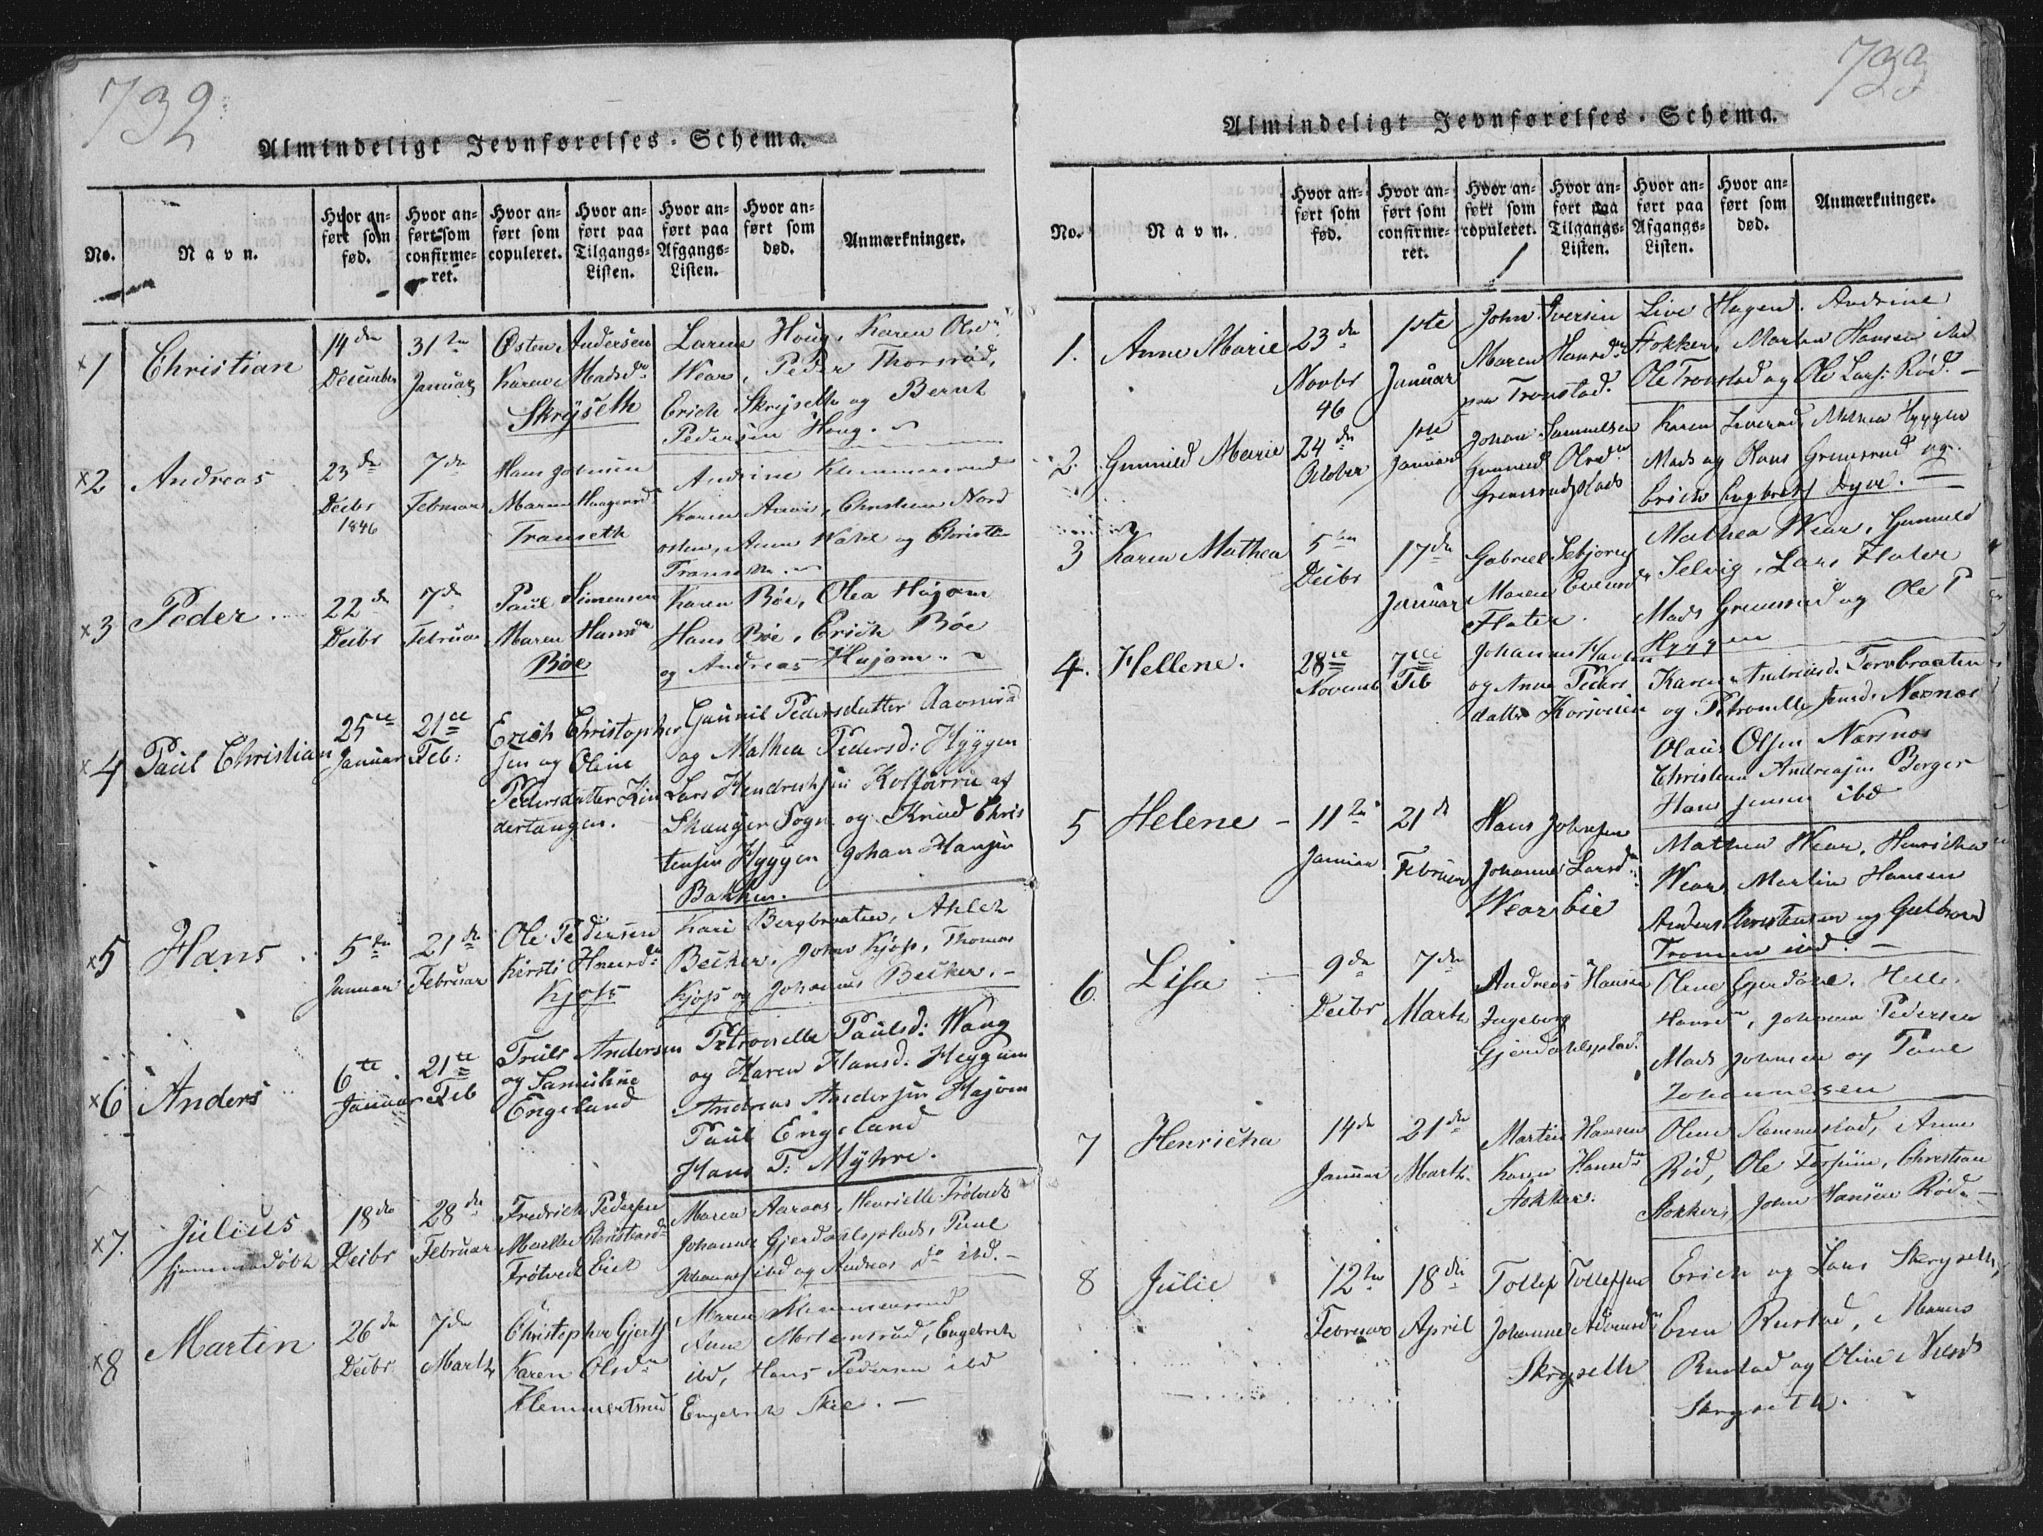 732
Almindeligt Jevnførelses-Schema.
No.
Navn.
Hvor anført som fød.
Hvor anført som confirmeret.
Hvor anført som copuleret.
Hvor anført paa Tilgangs-Listen.
Hvor anført paa Afgangs-Listen.
Hvor anført som død.
Anmærkninger.
x1 Christian
14de December
31te Januar
Østen Andersen
Karen Madsdr
Skryseth
Larine Houg, Karen Olsdr
Wear, Peder Thorsrød,
Erich Skryseth og Bernt
Pedersen Houg.
x2 Andreas
23de Decbr 1846
7de Februar
Hans Johnsen
Maren Haagensd
Transeth
Andrine Klemmetsrud
Karen , Christian Nord
, Anne og Christian
Transeth.
x3 Peder
22de Decbr
7de Februar
Paul Simensen
Maren Hansdr
Bøe
Karen Bøe, Olea Højom
Hans Bøe, Erich Bøe
og Andreas Højom.
x4 Paul Christian
25de Januar
21de Feb:
Erich Christopher
sen og Oline
Pedersdatter Kin
dertangen.
Gunnil Pedersdatter
og Mathea Pedersd: Hyggen
Lars Hendrichsen af
Skauger Sogn og Knud Chris
tensen Hyggen Johan Hansen
Bakken.
x5 Hans
5te Januar
21de Februar
Ole Pedersen
Kirsti dr
Kjøss
Kari Bergbraaten,
Becker, Johns Kjøss, Thomas
Kjøss og Johannes Becker.
x6 Anders
6te Januar
21te Feb
Truls Andersen
og Samuline
Engelund
Petronelle Paulsd: Wang
og Karen Hansd: Heggum
Andreas Andersen Højom
Paul Engelund
Hans T: Myhre.
x7. Julius
hjemmedøbt
18de Decbr
28de Februar
Fredrich Pedersen
Christiansd
Frøtvedt Eiet
Maren Aaraas, Henriette Frøtvedt
Johannes Gjerdahlsplads, Paul
Johannes ibd og Andreas do ibd.
x8 Martin
26de Decbr
7de Marts
Christopher Gjerts
Karen Olsdr
Klemmetsrud
Maren Klemmetsrud
Anne Mortensrud, Engebreth
ibd, Hans Pedersen ibd
Engebreth Skie.
733
Almindeligt Jevnførelses-Schema.
No.
Navn.
Hvor anført som fød.
Hvor anført som confirmeret.
Hvor anført som copuleret.
Hvor anført paa Tilgangs-Listen.
Hvor anført paa Afgangs-Listen.
Hvor anført som død.
Anmærkninger.
1. Anne Marie
23de Novbr 46
1ste Januar
John Iversen
Maren Hansdr
paa Tronstad.
Live Hagen, Andrine
Stokker, Marthe Hansen ibd
Ole Tronstad og Ole Lars: Rød.
2. Gunnild Marie
24de October
1ste Januar
Johan Samuelsen
Gunnild Olsdr
Grimsrudplads
Karen , Mathea Hyggen
Mads og Olaus Grimsrud og
Erich Engebrets Dyve.
3 Karen Mathea
5te Decbr
17de Januar
Gabriel
Maren Evensdr
Flater.
Mathea Wear, Gunnild
Selvig, Lars Flater
Mads Grimsrud og Ole P
Hyggen
4. Hellene.
28de Novemb
7de Feb
Johannes
og Anne Peders
datter Korsveien
Karen Andreasd. Tornbraaten
og Petronelle Jensd. Næsnæs
Olaus Olsen Næsnæs
Christian Andreasen Berger
Hans Jensen ibd
5 Helene
11te Januar
21de Februar
Hans Johnsen
Johanne Larsdr
Wearsbie
Mathea Wear, Henricha
Wear, Martin Hansen
Anders Christensen og Gulbrand
Tronsen ibd.
6. Lisa
9de Decbr
7de Marts
Andreas Hansen
Ingeborg
Gjerdahlsplads.
Oline Gjerdahl, Helle
Hansdr, Johannes Pedersen
Mads Johnsen og Paul
Johannesen
7 Henricha
14de Januar
21de Marts.
Martin Hansen
Karen Hansdr
Stokker.
Oline Slemmestad, Anne
Rød, Ole Fossum, Christian
Stokker, John Hansen Rød.
8 Julie
12te Februar
18de April
Tollef Tollefsen
Johanne
Skryseth
Erich og Lars Skryseth,
Even Rustad, Maren
Rustad og Oline Nilsdr
Skryseth.